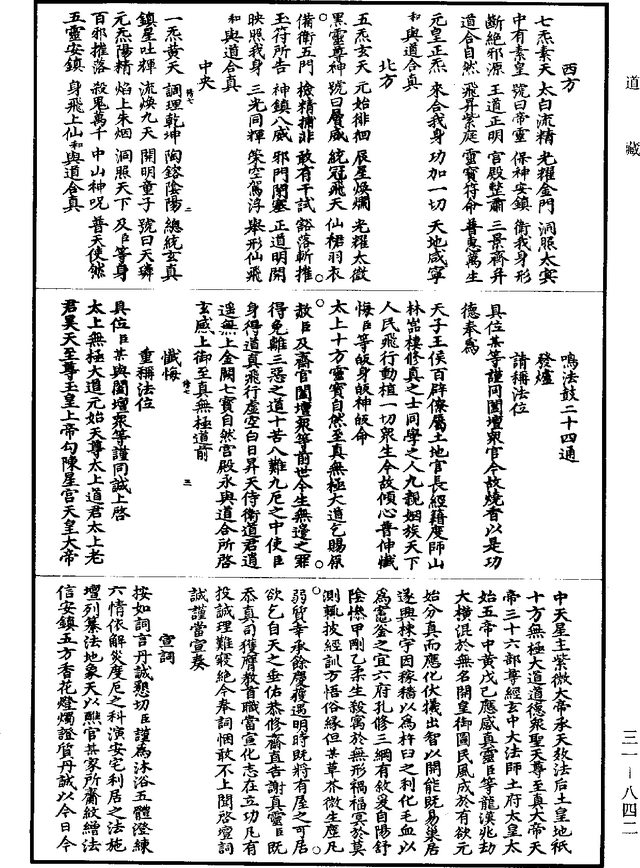 道藏
西方
七炁素天　太白流精　光耀金門　洞照太冥
中有素皇　號曰帝靈　保神安鎮　衛我身形
斷絕邪源　王道正明　官殿整肅　三景齊并
道合自然　飛昇紫庭　靈寶符命　普惠萬生
元皇正炁　來合我身　功加一切　天地咸寧
和與道合真
北方
五炁玄天　元始徘徊　辰星煥爛　光耀太微
黑靈尊神　號曰層威　統冠飛天　仙裙羽衣
備衛五門　檢精捕非　敢有干試　豁落斬摧
玉符所告　神鎮八威　邪門閉塞　正道明開
映照我身　三光同輝　策空駕浮　舉形仙飛
和與道合真
中央
一炁黃天　調理乾坤　陶鎔陰陽　總統玄真
鎮星吐輝　流煥九天　開明童子　號曰天璘
元炁陽精　焰上朱烟　洞照天下　及臣等身
百邪摧落　殺鬼萬千　中山神呪　普天使然
五靈安鎮　身飛上仙　和與道合真
鳴法鼓二十四通
發爐
請稱法位
具位某等謹同闔壇衆官今故燒香以是功
德奉爲
天子王侯百辟僚屬土地官長經籍度師山
林嵓棲修真之士同學之人九親姻族天下
人民飛行動植一切衆生今故傾心普伸懺
悔臣等皈身皈神皈命
太上十方靈寶自然至真無極大道乞賜原
赦臣及齋官闔壇衆等前世今生無邊之罪
得免離三惡之道十苦八難九厄之中使臣
身得道真飛行虛空白日昇天侍衛道君逍
遥無上金闕七寶自然宮殿永與道合所啓
玄感上御至真無極道前
懺悔
重稱法位
具位臣某與闔壇衆等謹同誠上啓
太上無極大道元始天尊太上道君太上老
君昊天至尊玉皇上帝勾陳星宮天皇大帝
中天星主紫微大帝承天效法后土皇地祇
十方無極大道道德衆聖天尊至真大帝天
帝三十六部尊經玄中大法師土府太皇太
始五帝中黃戊己應感真靈臣等龍漢兆劫
大橫混於無名開皇御圖民風成於有欲元
始分真而應化伏犧出智以開能既易巢居
遂興棟宇因稼穡以爲杵臼之利化毛血以
爲竈釜之宜六府孔修三綱有敘爰自陽舒
陰慘甲剛乙柔生殺寓於無形禍福冥於莫
測輒披經訓方悟俗緣但某草木微生塵凡
弱質幸承餘慶獲遇明時既將有屋之可居
欲乞自天之垂佑恭修齋直告謝真靈臣既
忝真司獲膺教首職當宣化志在立功凡有
投誠理難寢絶今奉詞悃敢不上聞啓壇詞
誠謹當宣奏
宣詞
按如詞言丹誠懇切臣謹爲沐浴五體澄練
六情依解災度厄之科演安宅利居之法施
壇列纂法地象天以照官某家所齎紋繒法
信安鎮五方香花燈燭證質丹誠以今日今
三一—八四二